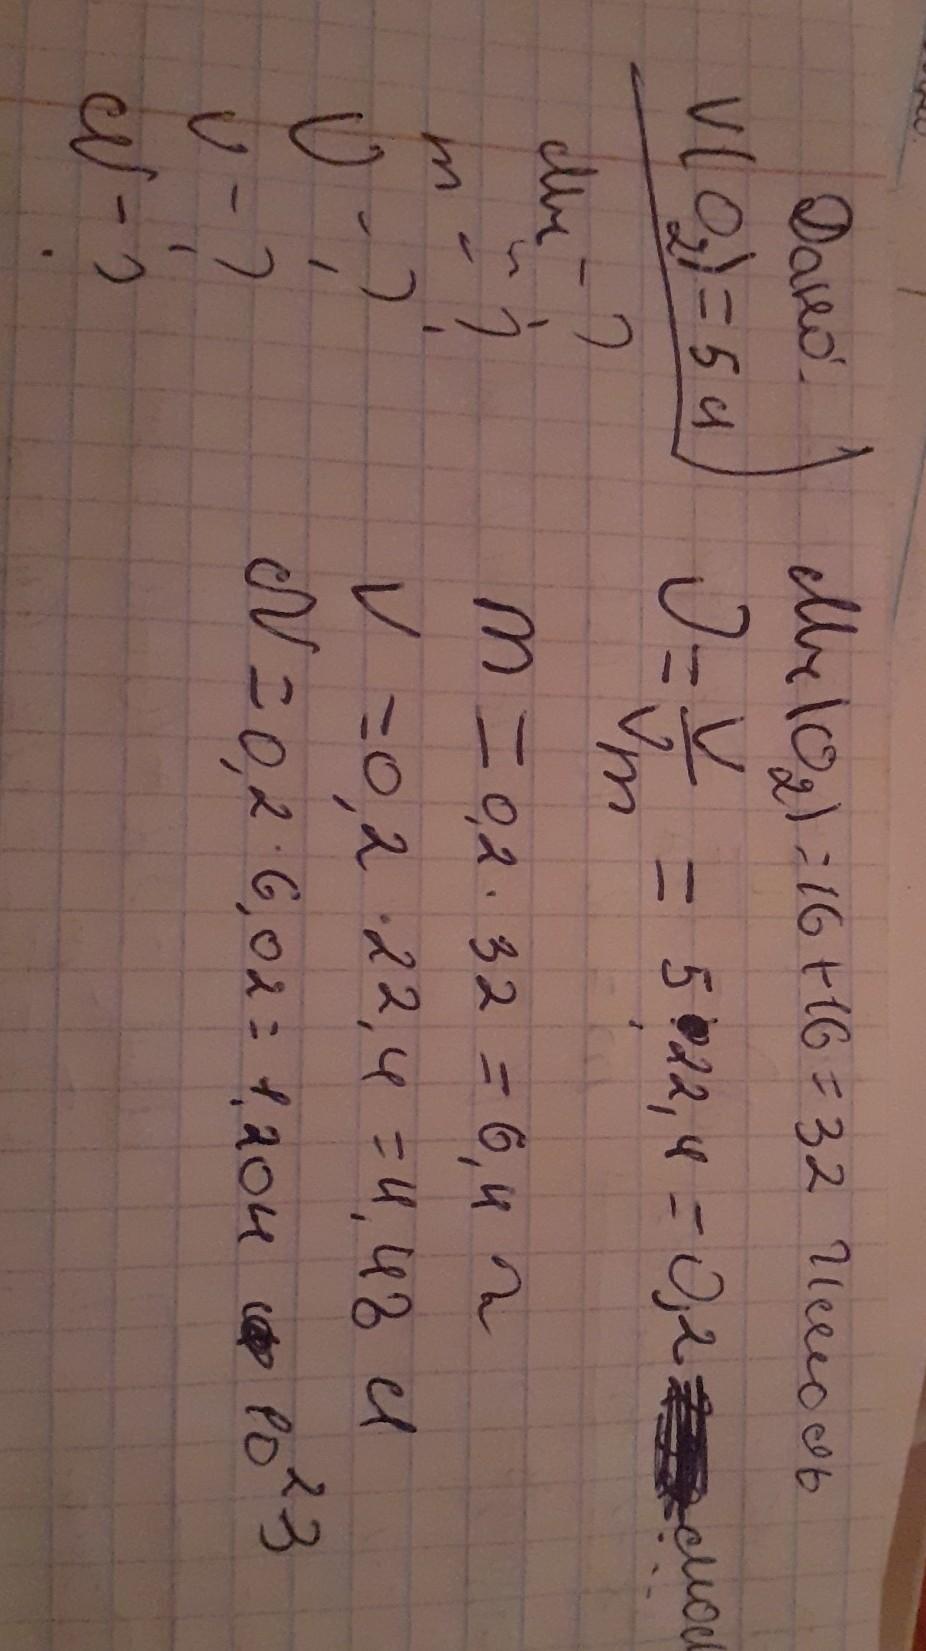 Дано:
V(O2)=5л
Mr-?
m-?
ν-?
V-?
N-?
Mr(O2)=16+16=32 г/моль
ν=V/Vm = 5:22,4=0,2 моль
m=0,2·32=6,4 г
V=0,2·22,4=4,48 л
N=0,2·6,02=1,204 · 10^23